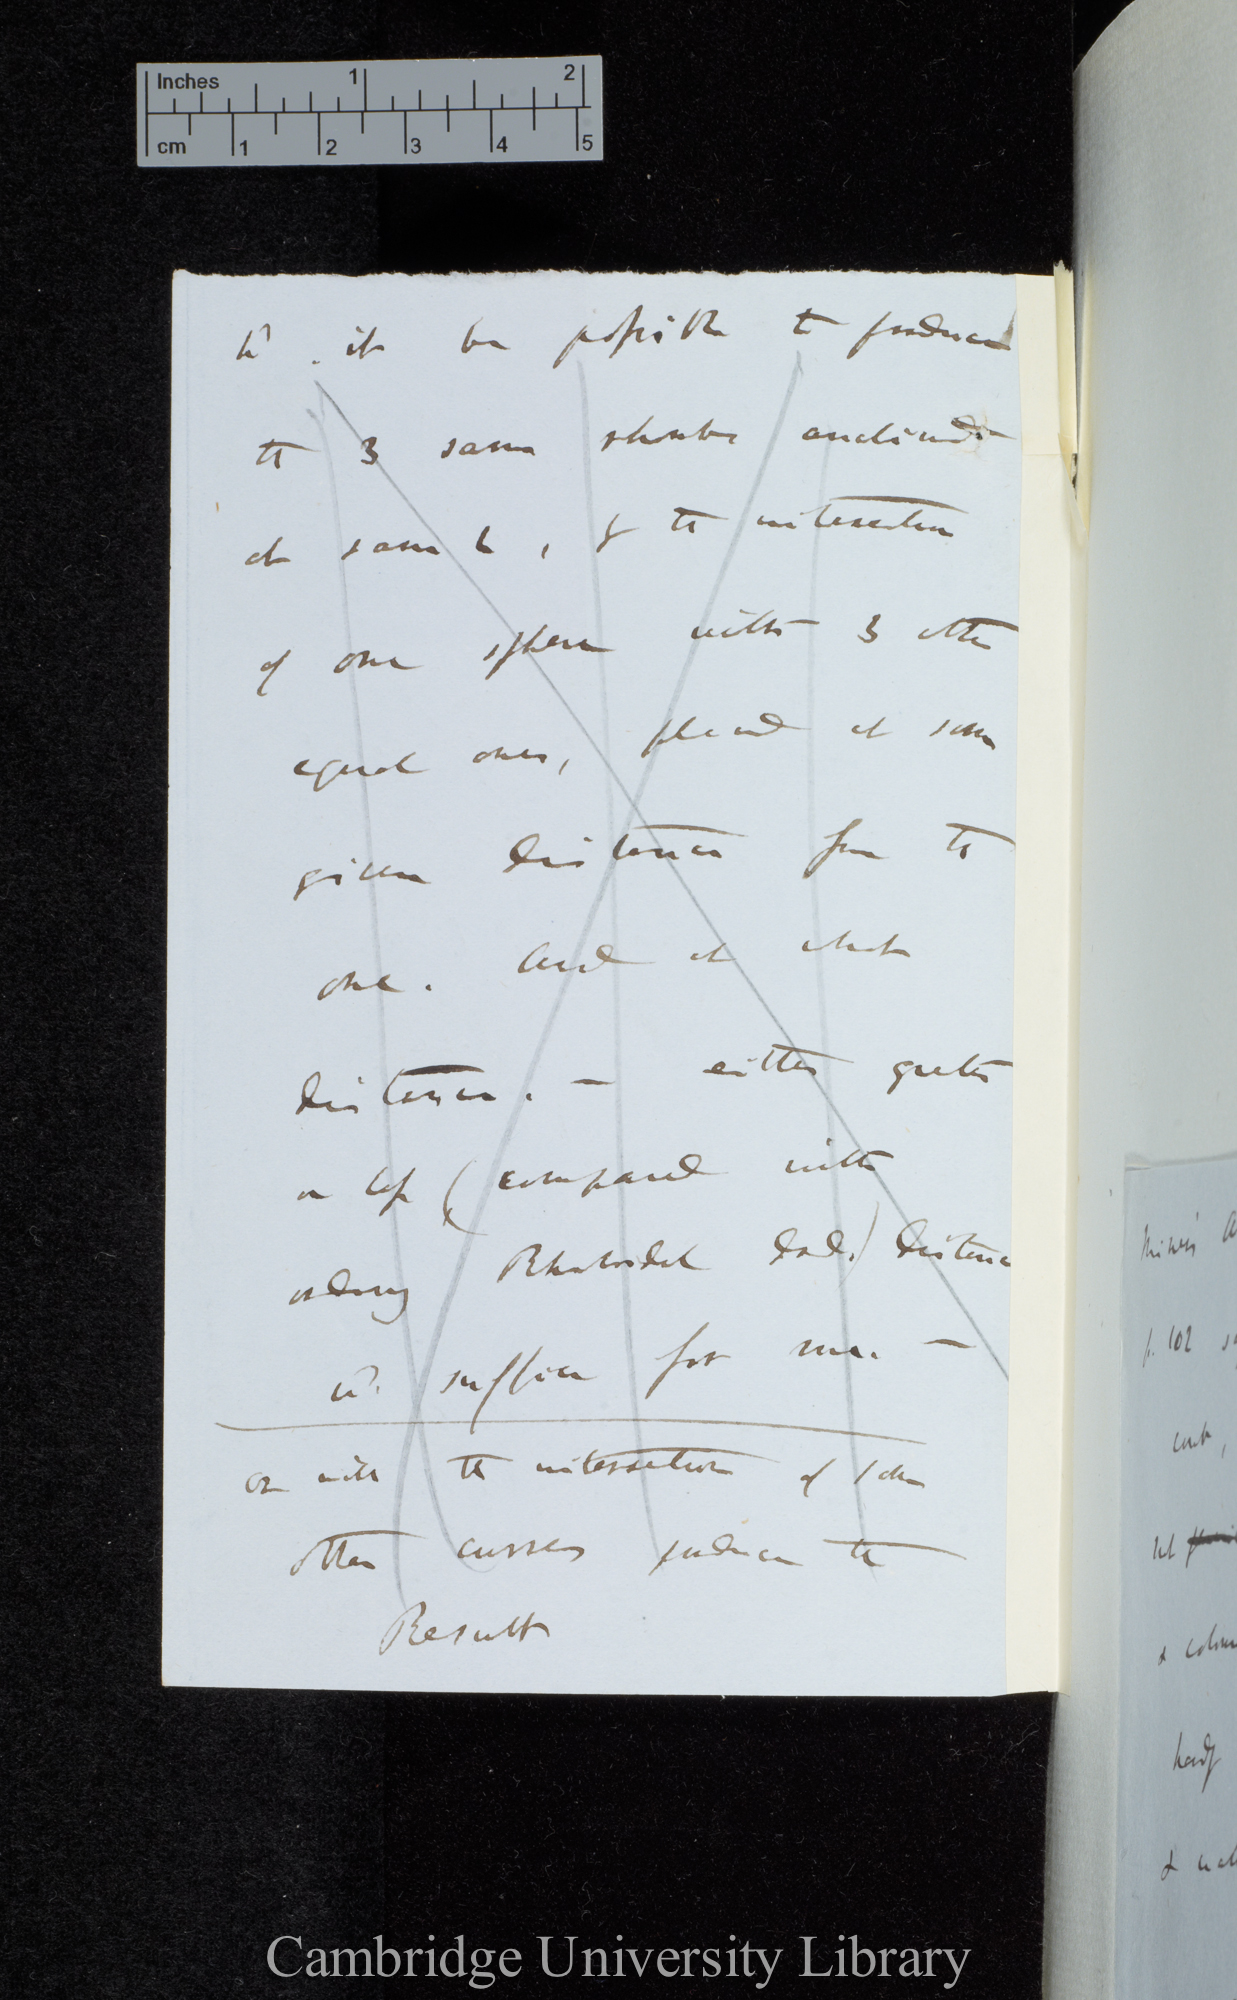 Inches 1 2
cm 1 2 3 4 5
wd. it be possible to produce
the 3 same rhombs inclined
at same L, by the intersection
of one sphere with 3 other
equal ones, placed at some
given distance from the
one. And at what
distance. — either greater
or less (compared with
ordinary Rhomboidal dod.) distance
wd. suffice for me. —
or will the intersection of some
other curves produce the
Result
p. 102
Cambridge University Library